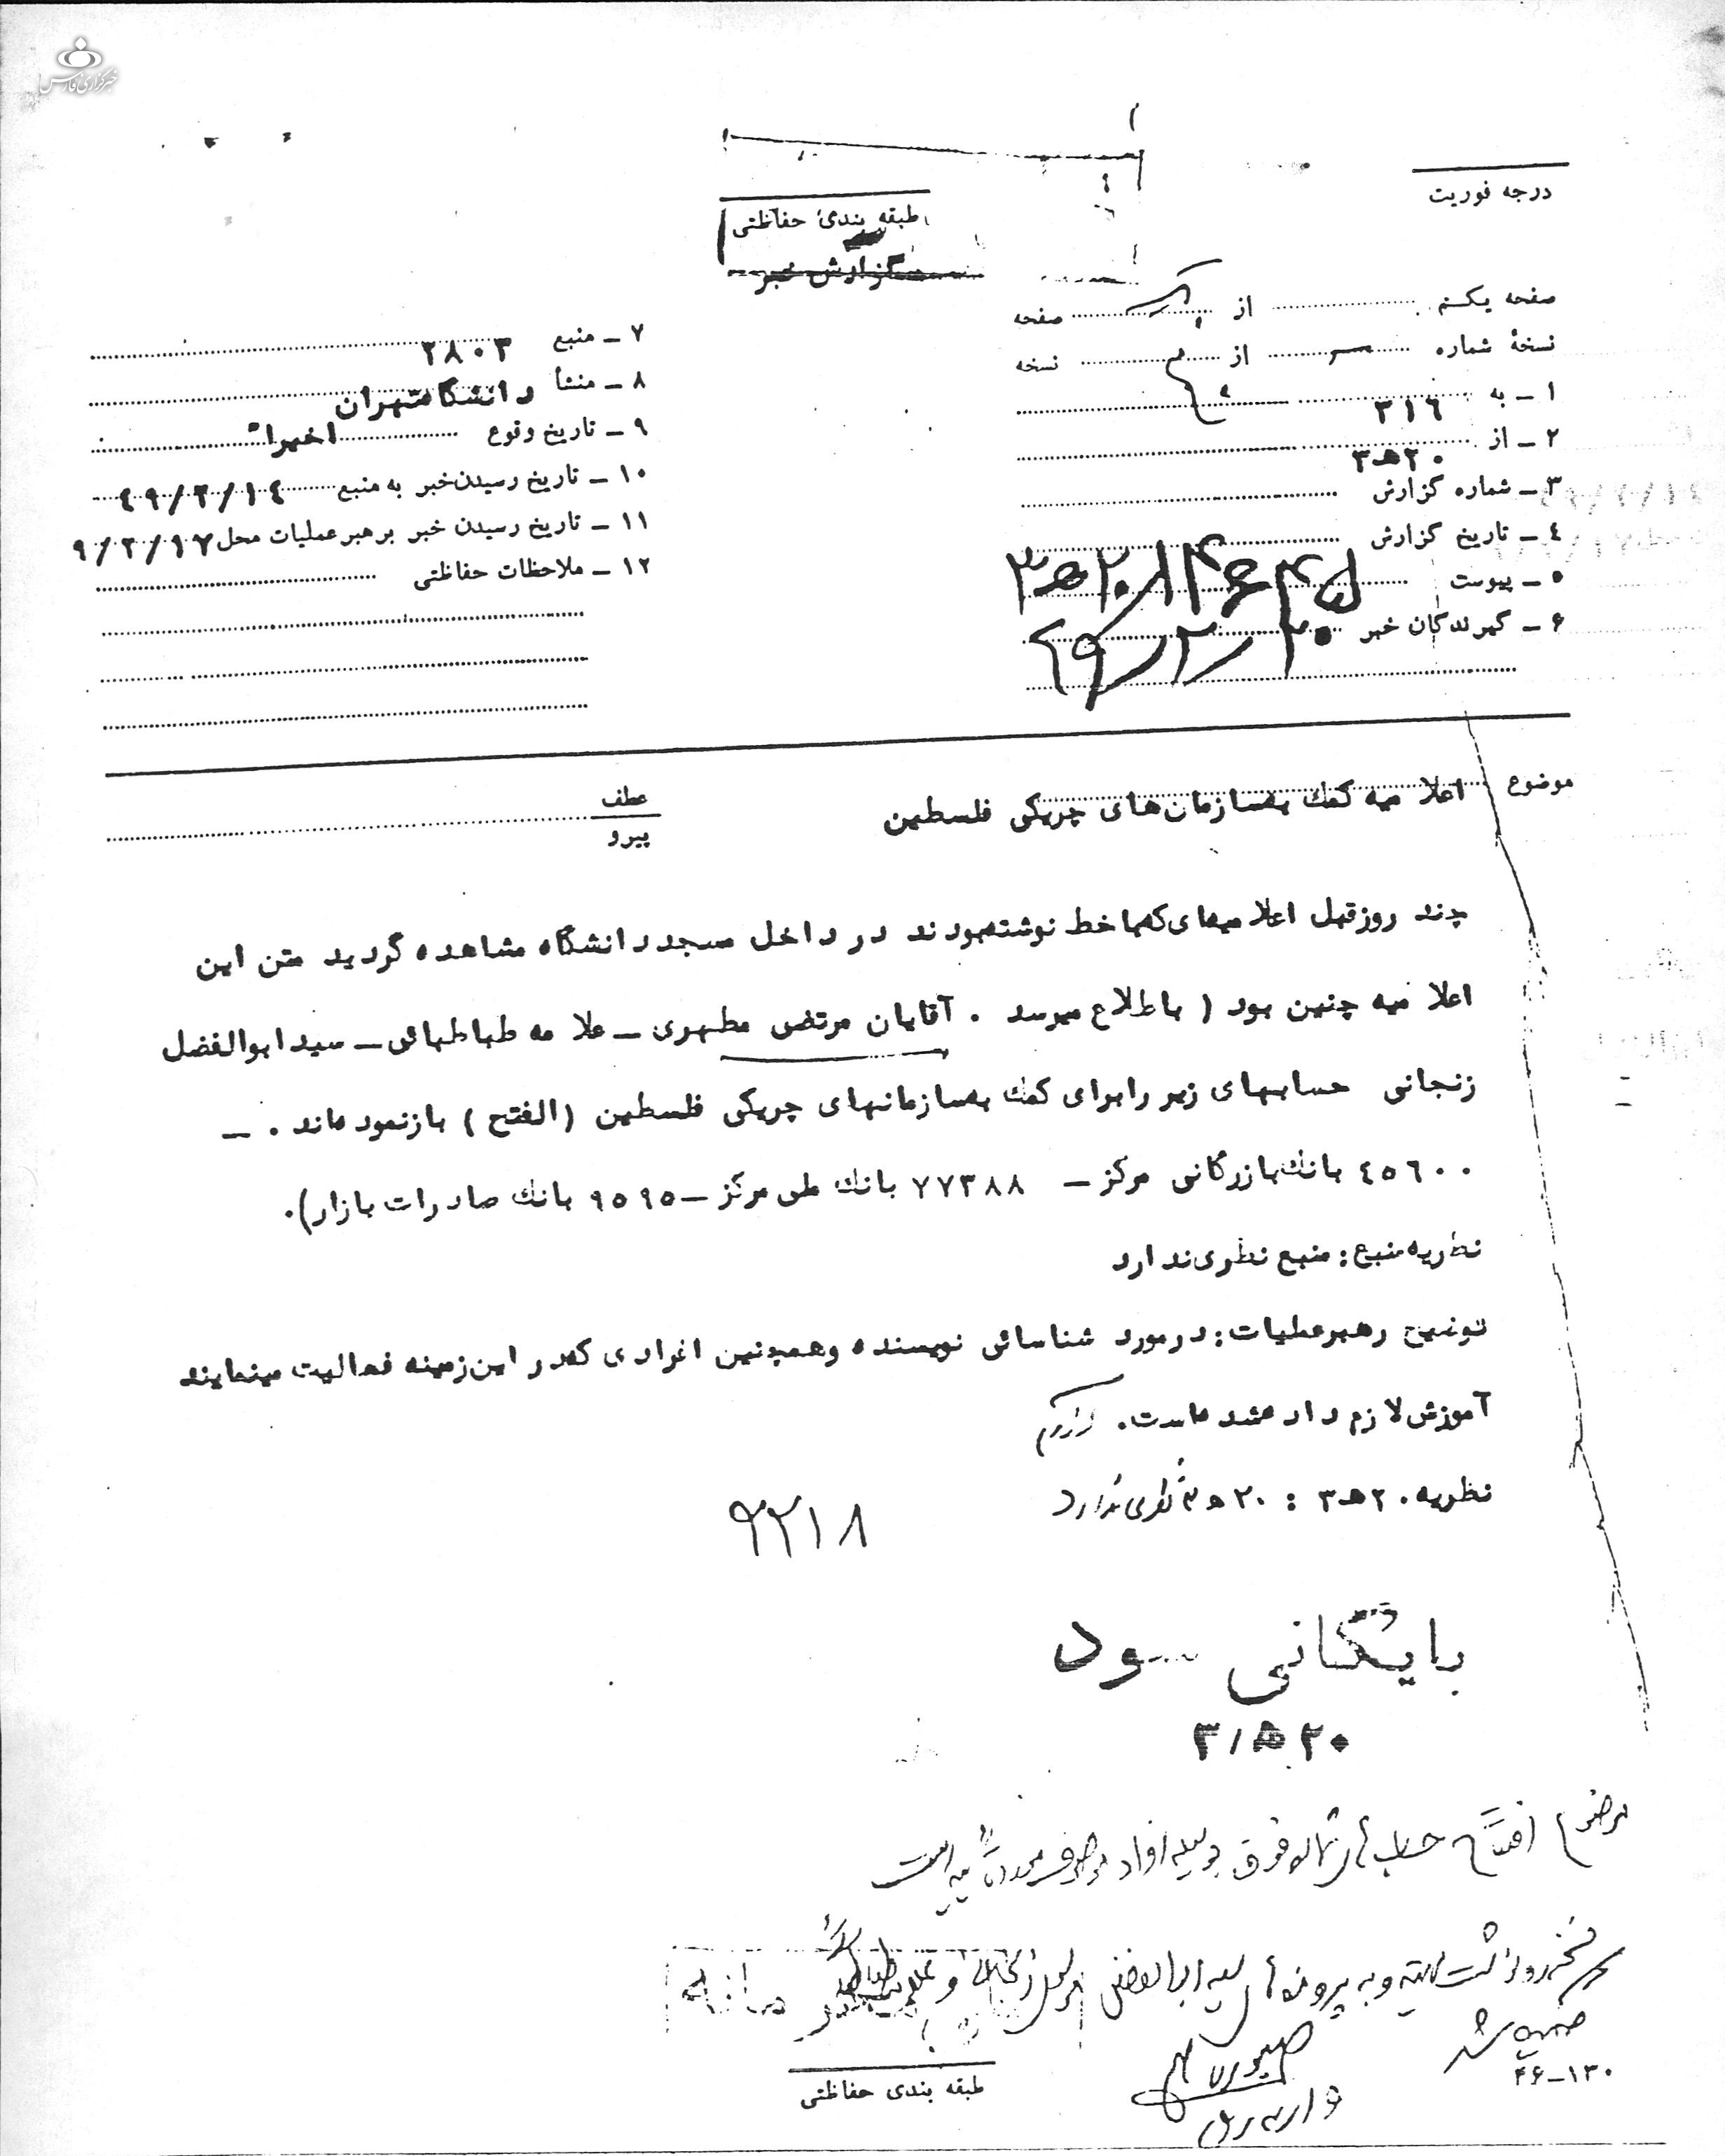 خبرگزاری فارس
درجه فوریت
طبقه بندی حفاظتی
گزارش خبر
صفحه یکم از یک صفحه
نسخهٔ شماره از نسخه
۱ ـ به ۳۱۶
۲ ـ از ۲۰ هـ ۳
۳ ـ شماره گزارش
۴ ـ تاریخ گزارش
۵ ـ پیوست
۶ ـ گیرندگان خبر
۷ ـ منبع ۲۸۰۳
۸ ـ منشأ دانشگاه تهران
۹ ـ تاریخ وقوع اخیراً
۱۰ ـ تاریخ رسیدن خبر به منبع ۴۹/۲/۱۴
۱۱ ـ تاریخ رسیدن خبر برهبر عملیات محل ۹/۲/۱۷
۱۲ ـ ملاحظات حفاظتی
موضوع اعلامیه کمک به سازمان‌های چریکی فلسطین
عطف
پیرو
چند روز قبل اعلامیه‌ای که با خط نوشته بودند در داخل مسجد دانشگاه مشاهده گردید متن این
اعلامیه چنین بود ( باطلاع میرسد . آقایان مرتضی مطهری ـ علامه طباطبائی ـ سید ابوالفضل
زنجانی حسابهای زیر را برای کمک به سازمانهای چریکی فلسطین (الفتح ) باز نموده‌اند . ـ
۴۵۶۰۰ بانک بازرگانی مرکز ـ ۷۷۳۸۸ بانک ملی مرکز ـ ۹۵۹۵ بانک صادرات بازار).
نظریه منبع : منبع نظری ندارد
توضیح رهبر عملیات : در مورد شناسائی نویسنده و همچنین افرادی که در این زمینه فعالیت مینمایند
آموزش لازم داده شده است.
نظریه ۲۰ هـ ۳ : ۲۰ هـ ۳ نظری ندارد
۹۲۱۸
بایگانی شود
۲۰ هـ ۳/
موضوع افتتاح حساب‌های فوق بوسیله افراد
ضمیمه شد
طبقه بندی حفاظتی
۴۶-۱۳۰